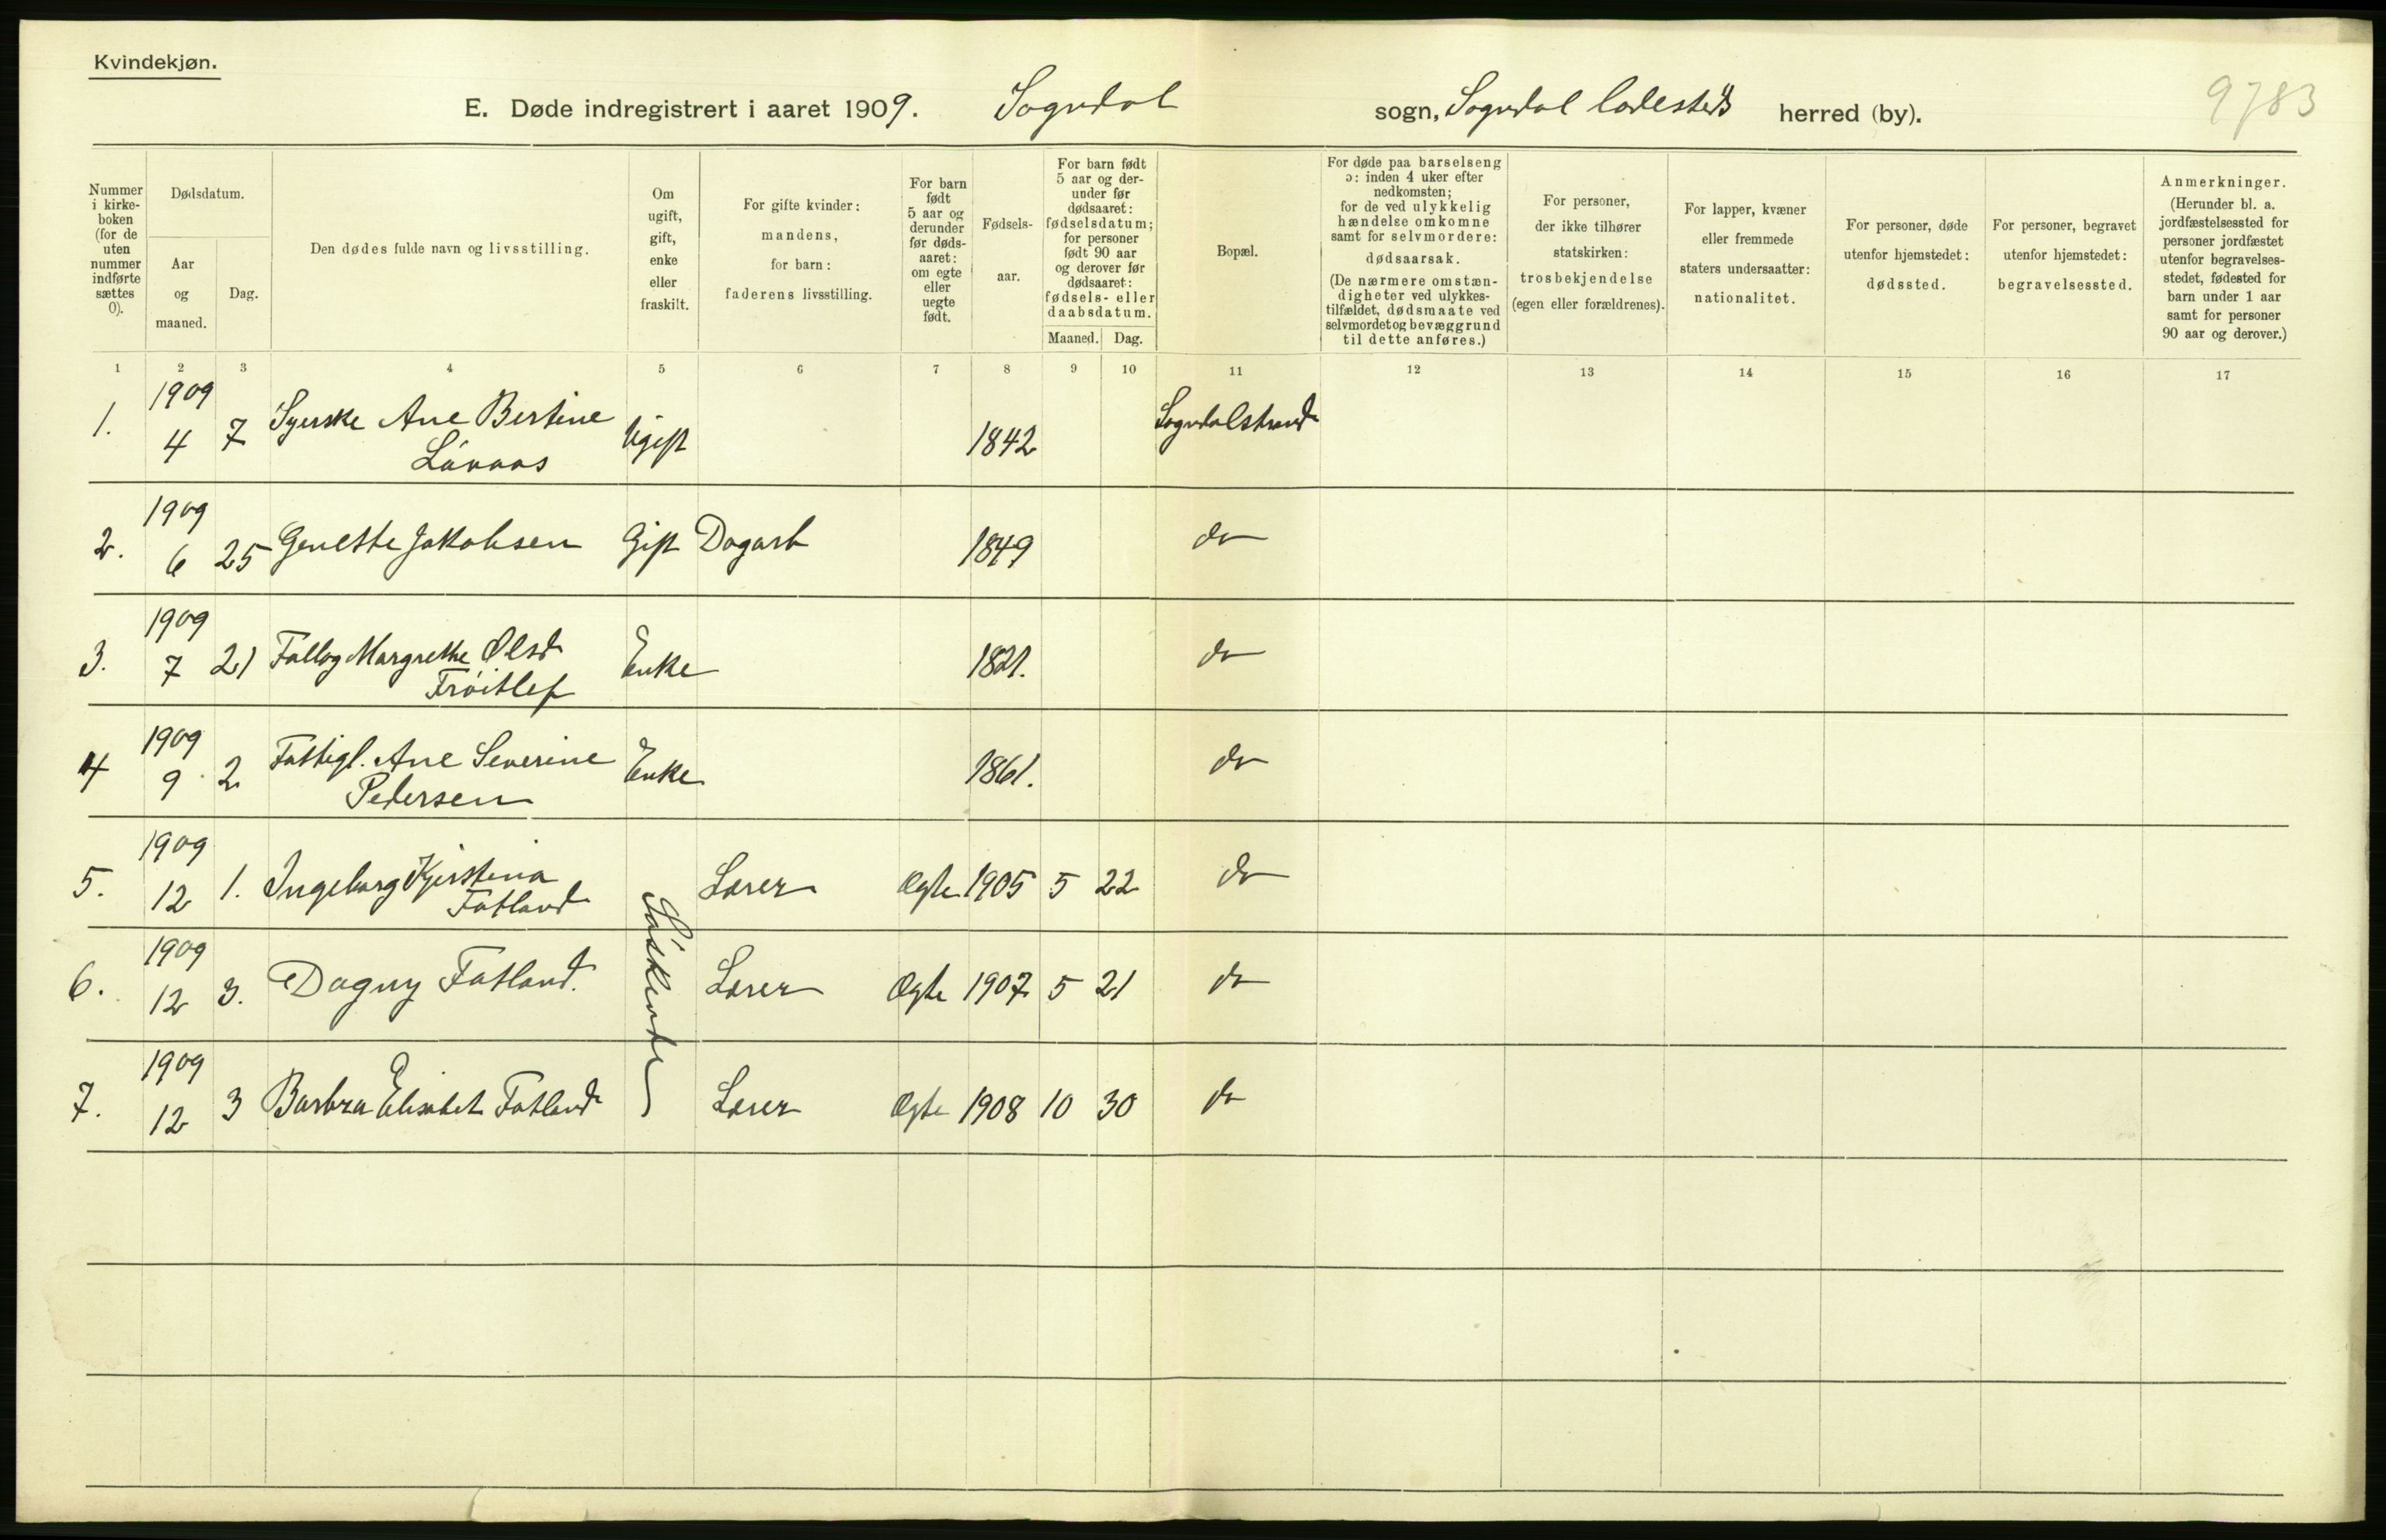 Kvindekjøn.
E. Døde indregistrert i aaret 1909. Sogndal sogn, Sogndal ladesteds herred (by).
9783
Nummer i kirke- boken (for de uten nummer indførte sættes 0).
Dødsdatum.
Aar og maaned.
Dag.
Den dødes fulde navn og livsstilling.
Om ugift, gift, enke eller fraskilt.
For gifte kvinder: mandens, for barn: faderens livsstilling.
For barn født 5 aar og derunder før døds- aaret: om egte eller uegte født.
Fødsels- aar.
For barn født 5 aar og der- under før dødsaaret: fødselsdatum; for personer født 90 aar og derover før dødsaaret: fødsels- eller daabsdatum.
Maaned. Dag.
Bopæl.
For døde paa barselseng ɔ: inden 4 uker efter nedkomsten; for de ved ulykkelig hændelse omkomne samt for selvmordere: dødsaarsak. (De nærmere omstæn- digheter ved ulykkes- tilfældet, dødsmaate ved selvmordet og bevæggrund til dette anføres.)
For personer, der ikke tilhører statskirken: trosbekjendelse (egen eller forældrenes).
For lapper, kvæner eller fremmede staters undersaatter: nationalitet.
For personer, døde utenfor hjemstedet: dødssted.
For personer, begravet utenfor hjemstedet: begravelsessted.
Anmerkninger. (Herunder bl. a. jordfæstelsessted for personer jordfæstet utenfor begravelses- stedet, fødested for barn under 1 aar samt for personer 90 aar og derover.)
1 2 3 4 5 6 7 8 9 10 11 12 13 14 15 16 17
1909
1. 4 7 Syerske Ane Bertine Ugift 1842 Sogndalstrand
Lóvaas
1909
2. 6 25 Genette Jakobsen Gift Dagarb 1849 do
1909
3. 7 21 Fattog Margrethe Olsd Enke 1821. do
Tróitlef
1909
4 9 2 Fattigl. Ane Severine Enke 1861. do
Pedersen
1909
5. 12 1. Ingeborg Kjerstina Lærer Ægte 1905 5 22 do
Fatland
Sóskende
1909
6. 12 3. Dagny Fatland. Lærer Ægte 1907 5 21 do
1909
7. 12 3 Barbra Elisabet Fatland Lærer Ægte 1908 10 30 do